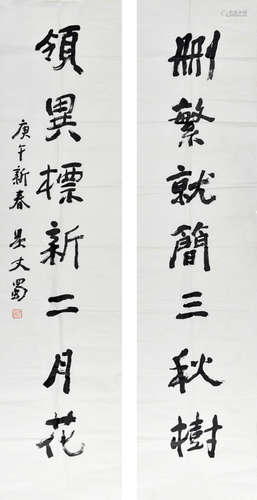 删繁就簡三秋樹
領異標新二月花
庚午新春 吴丈蜀